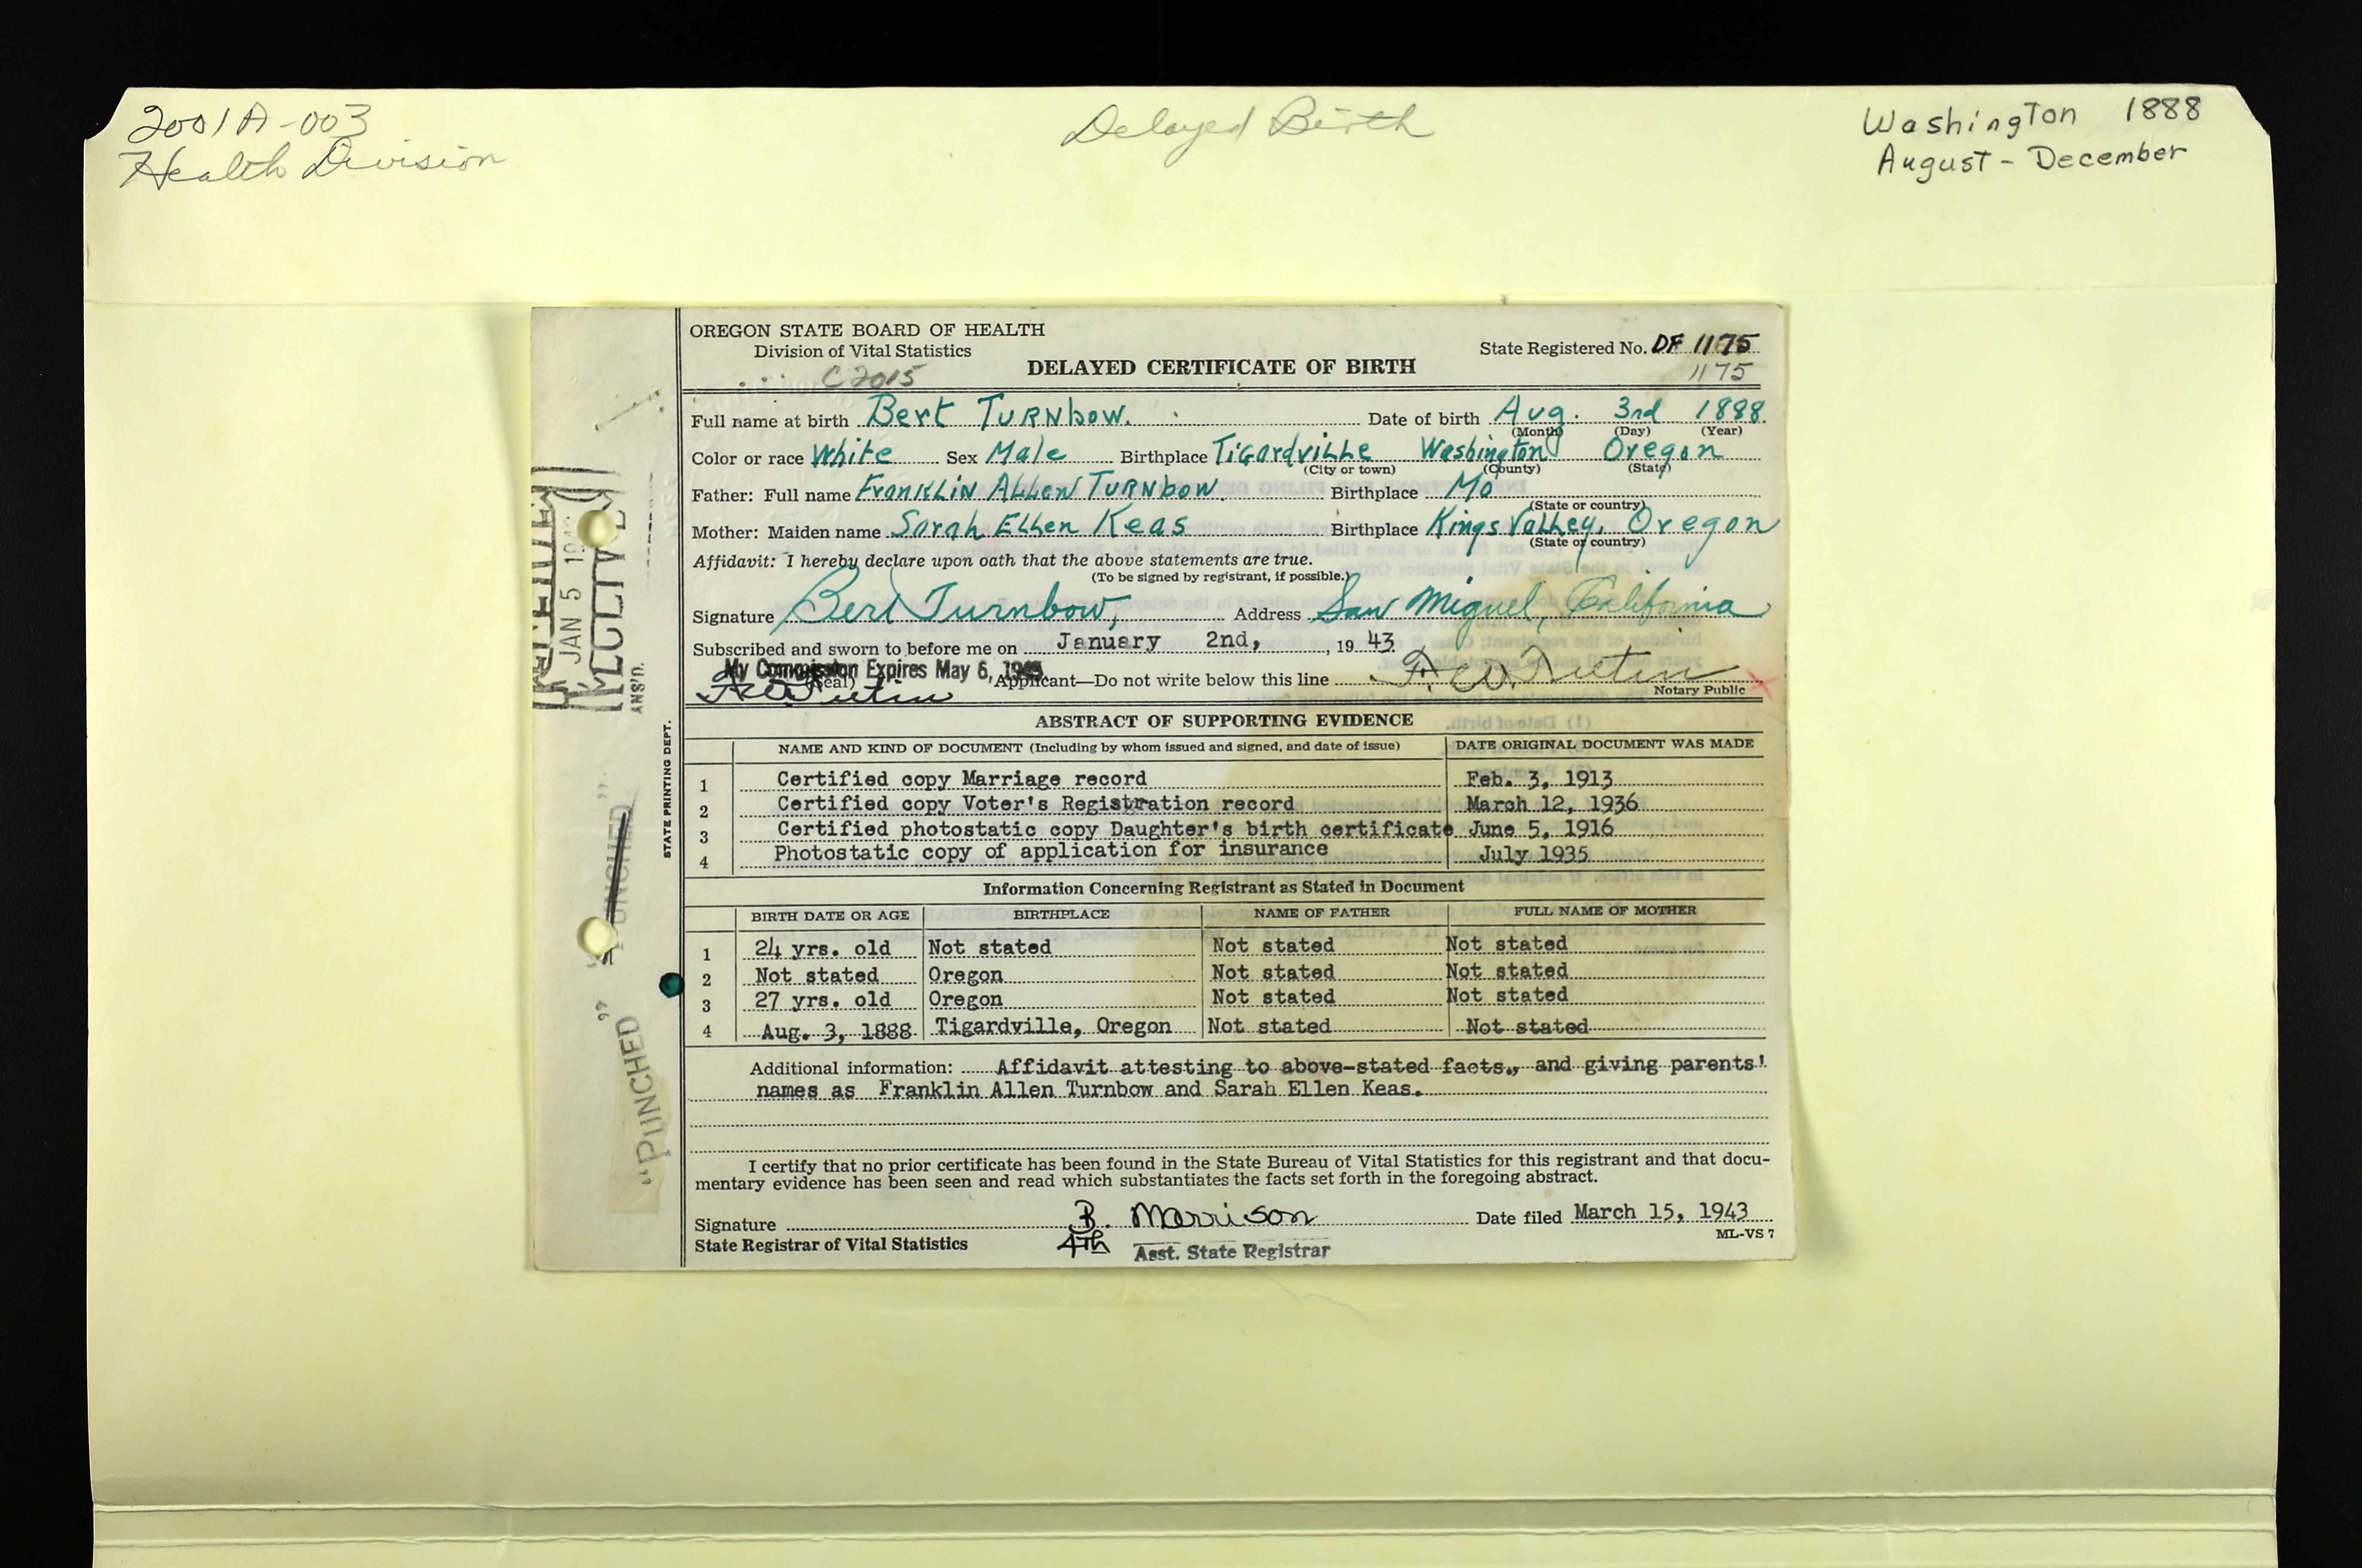 2001A-003
Health Division
Delayed Birth
Washington 1888
August - December
OREGON STATE BOARD OF HEALTH
Division of Vital Statistics
C2015
DELAYED CERTIFICATE OF BIRTH
State Registered No. DF 1175
1175
Full name at birth Bert Turnbow. Date of birth Aug. 3rd 1888.
(Month) (Day) (Year)
Color or race White Sex Male Birthplace Tigardville Washington Oregon
(City or town) (County) (State)
Father: Full name Franklin Allen Turnbow Birthplace Mo
(State or country)
Mother: Maiden name Sarah Ellen Keas Birthplace Kings Valley, Oregon
(State or country)
Affidavit: I hereby declare upon oath that the above statements are true.
(To be signed by registrant, if possible.)
Signature Bert Turnbow, Address San Miguel, California
Subscribed and sworn to before me on January 2nd, 19 43
My Commission Expires May 6, 1945
(Seal) Applicant—Do not write below this line F. W.
Notary Public
ABSTRACT OF SUPPORTING EVIDENCE
NAME AND KIND OF DOCUMENT (Including by whom issued and signed, and date of issue) DATE ORIGINAL DOCUMENT WAS MADE
1 Certified copy Marriage record Feb. 3, 1913
2 Certified copy Voter's Registration record March 12, 1936
3 Certified photostatic copy Daughter's birth certificate June 5, 1916
4 Photostatic copy of application for insurance July 1935
Information Concerning Registrant as Stated in Document
BIRTH DATE OR AGE BIRTHPLACE NAME OF FATHER FULL NAME OF MOTHER
1 24 yrs. old Not stated Not stated Not stated
2 Not stated Oregon Not stated Not stated
3 27 yrs. old Oregon Not stated Not stated
4 Aug. 3, 1888 Tigardville, Oregon Not stated Not stated
Additional information: Affidavit attesting to above-stated facts, and giving parents'
names as Franklin Allen Turnbow and Sarah Ellen Keas.
I certify that no prior certificate has been found in the State Bureau of Vital Statistics for this registrant and that docu-
mentary evidence has been seen and read which substantiates the facts set forth in the foregoing abstract.
Signature B. Morrison Date filed March 15, 1943
State Registrar of Vital Statistics 4th Asst. State Registrar
ML-VS 7
RECEIVED
JAN 5
ANS'D.
STATE PRINTING DEPT.
"PUNCHED"
"PUNCHED"